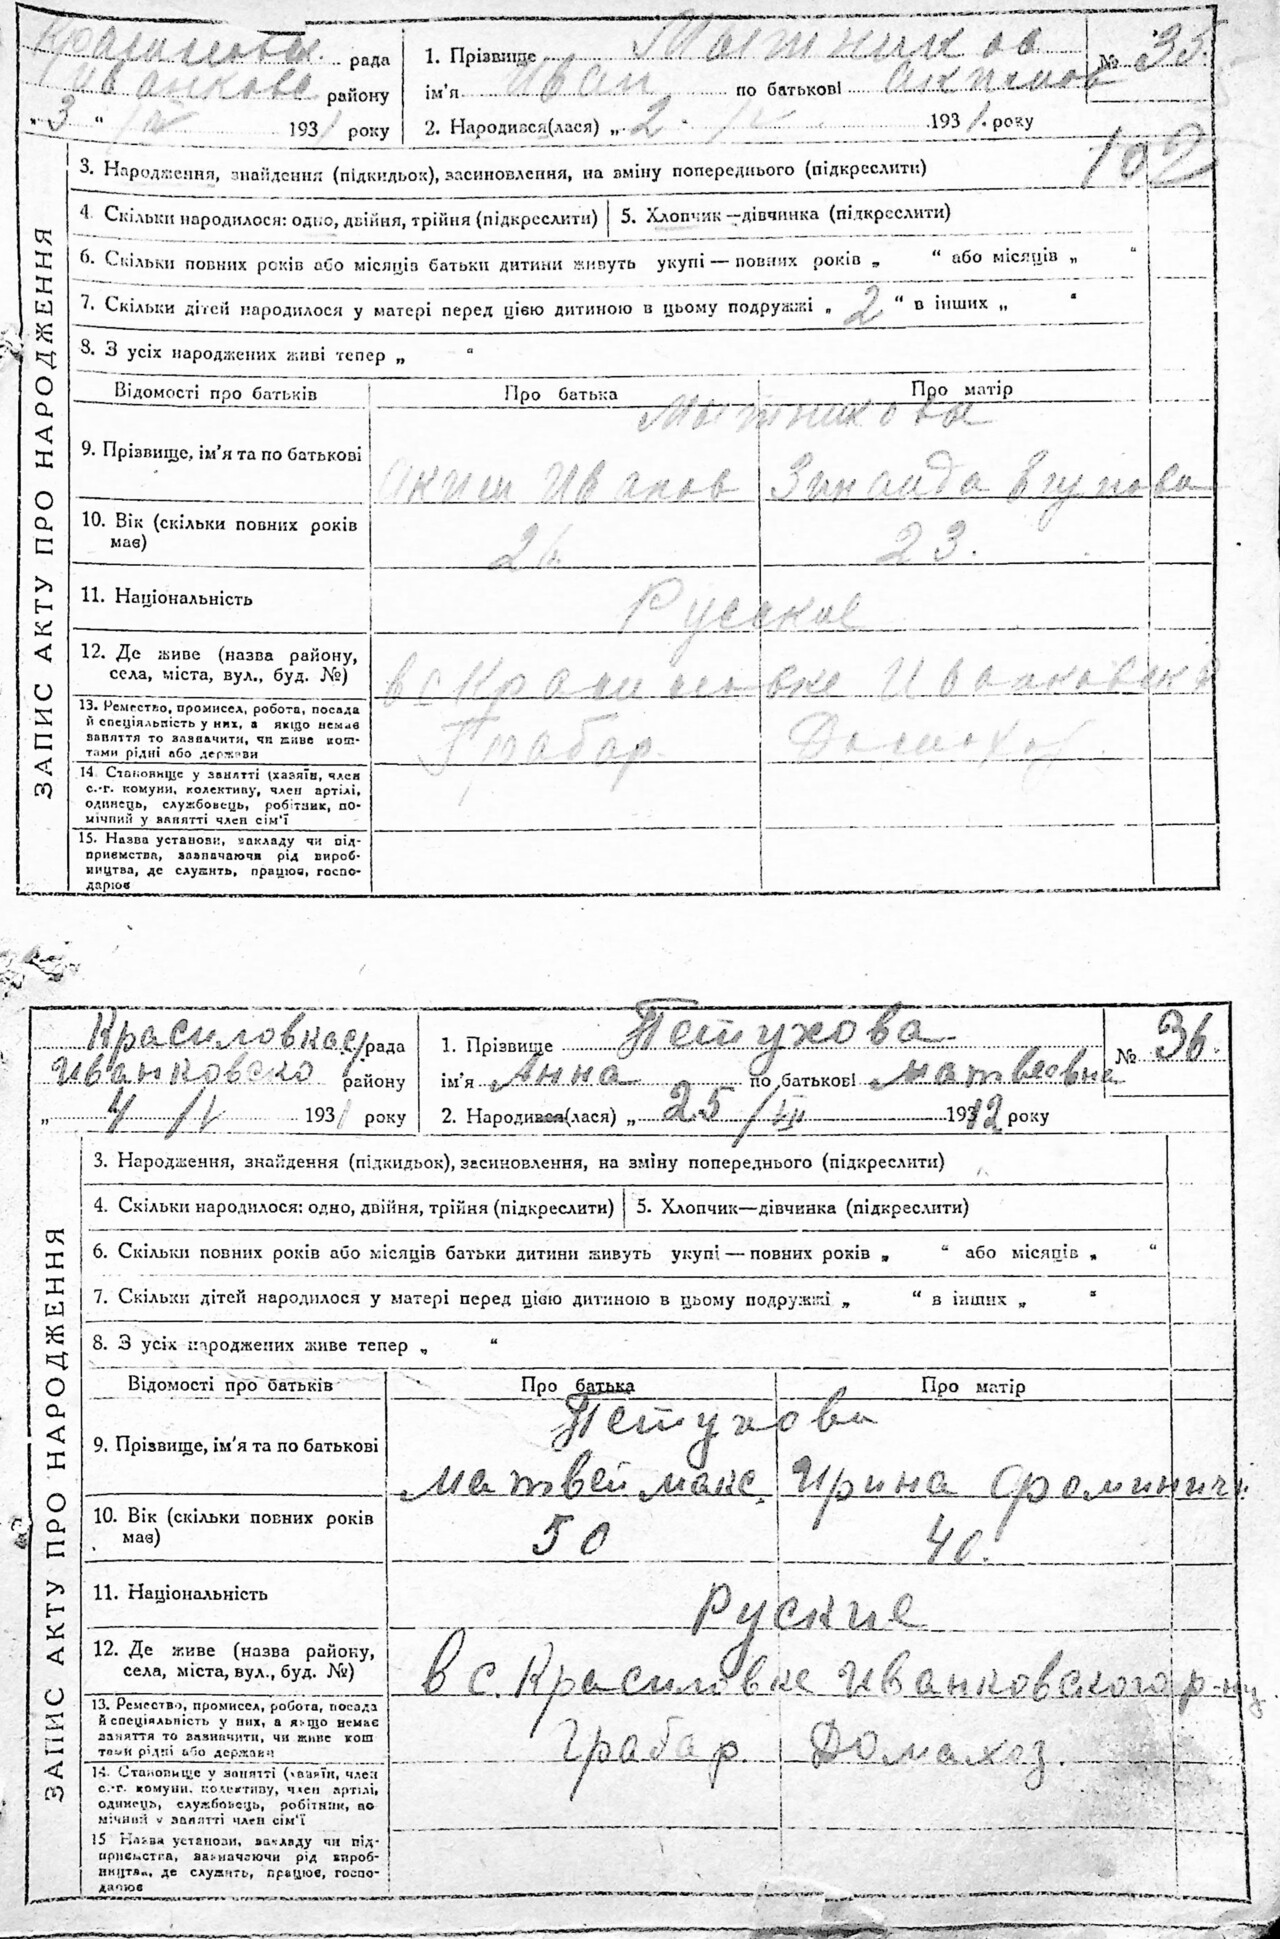 Красиловск. рада
Иванковс району
„ 3 “ IV 1931 року
1. Прізвище Мытников
ім'я Иван по батькові Акимов
2. Народився(лася) „ 2. IV 1931. року
№ 35.
102
ЗАПИС АКТУ ПРО НАРОДЖЕННЯ
3. Народження, знайдення (підкидьок), засиновлення, на зміну попереднього (підкреслити)
4. Скільки народилося: одно, двійня, трійня (підкреслити) 5. Хлопчик—дівчинка (підкреслити)
6. Скільки повних років або місяців батьки дитини живуть укупі — повних років „ “ або місяців „ “
7. Скільки дітей народилося у матері перед цією дитиною в цьому подружжі „ 2 “ в інших „ “
8. З усіх народжених живі тепер „ “
Відомості про батьків Про батька Про матір
Мытниковы
9. Прізвище, ім'я та по батькові
Аким Иванов Зинаида
10. Вік (скільки повних років
має)
23.
11. Національність Русские
12. Де живе (назва району,
села, міста, вул., буд. №)
в с Красиловке Иванковск
13. Ремество, промисел, робота, посада
й спеціяльність у них, а якщо немає
заняття то зазначити, чи живе кош-
тами рідні або держави
Грабар. Домохоз.
14. Становище у занятті (хазяїн, член
с.-г. комуни, колективу, член артілі,
одинець, службовець, робітник, по-
мічний у занятті член сім'ї
15. Назва установи, закладу чи під-
приємства, зазначаючи рід вироб-
ництва, де служить, працює, госпо-
дарює
Красиловкас/рада
Иванковско району
„ 4/IV 1931 року
1. Прізвище Петухова
ім'я Анна по батькові Матвеовна
2. Народився(лася) „ 25/III 1912 року
№ 36.
ЗАПИС АКТУ ПРО НАРОДЖЕННЯ
3. Народження, знайдення (підкидьок), засиновлення, на зміну попереднього (підкреслити)
4. Скільки народилося: одно, двійня, трійня (підкреслити) 5. Хлопчик—дівчинка (підкреслити)
6. Скільки повних років або місяців батьки дитини живуть укупі — повних років „ “ або місяців „ “
7. Скільки дітей народилося у матері перед цією дитиною в цьому подружжі „ “ в інших „ “
8. З усіх народжених живе тепер „ “
Відомості про батьків Про батька Про матір
Петуховы
9. Прізвище, ім'я та по батькові
Матвей Макс. Ирина Фоминич
10. Вік (скільки повних років
має)
50 40.
11. Національність Руские
12. Де живе (назва району,
села, міста, вул., буд. №)
в с. Красиловке Иванковского р-ну.
13. Ремество, промисел, робота, посада
й спеціяльність у них, а якщо немає
заняття то зазначити, чи живе кош
тами рідні або держави
Грабар. Домахоз.
14. Становище у занятті (хазяїн, член
с.-г. комуни, колективу, член артілі,
одинець, службовець, робітник, по
мічний у занятті член сім'ї
15 Назва установи, закладу чи під-
приємства, зазначаючи рід вироб-
ництва, де служить, працює, госпо-
дарює